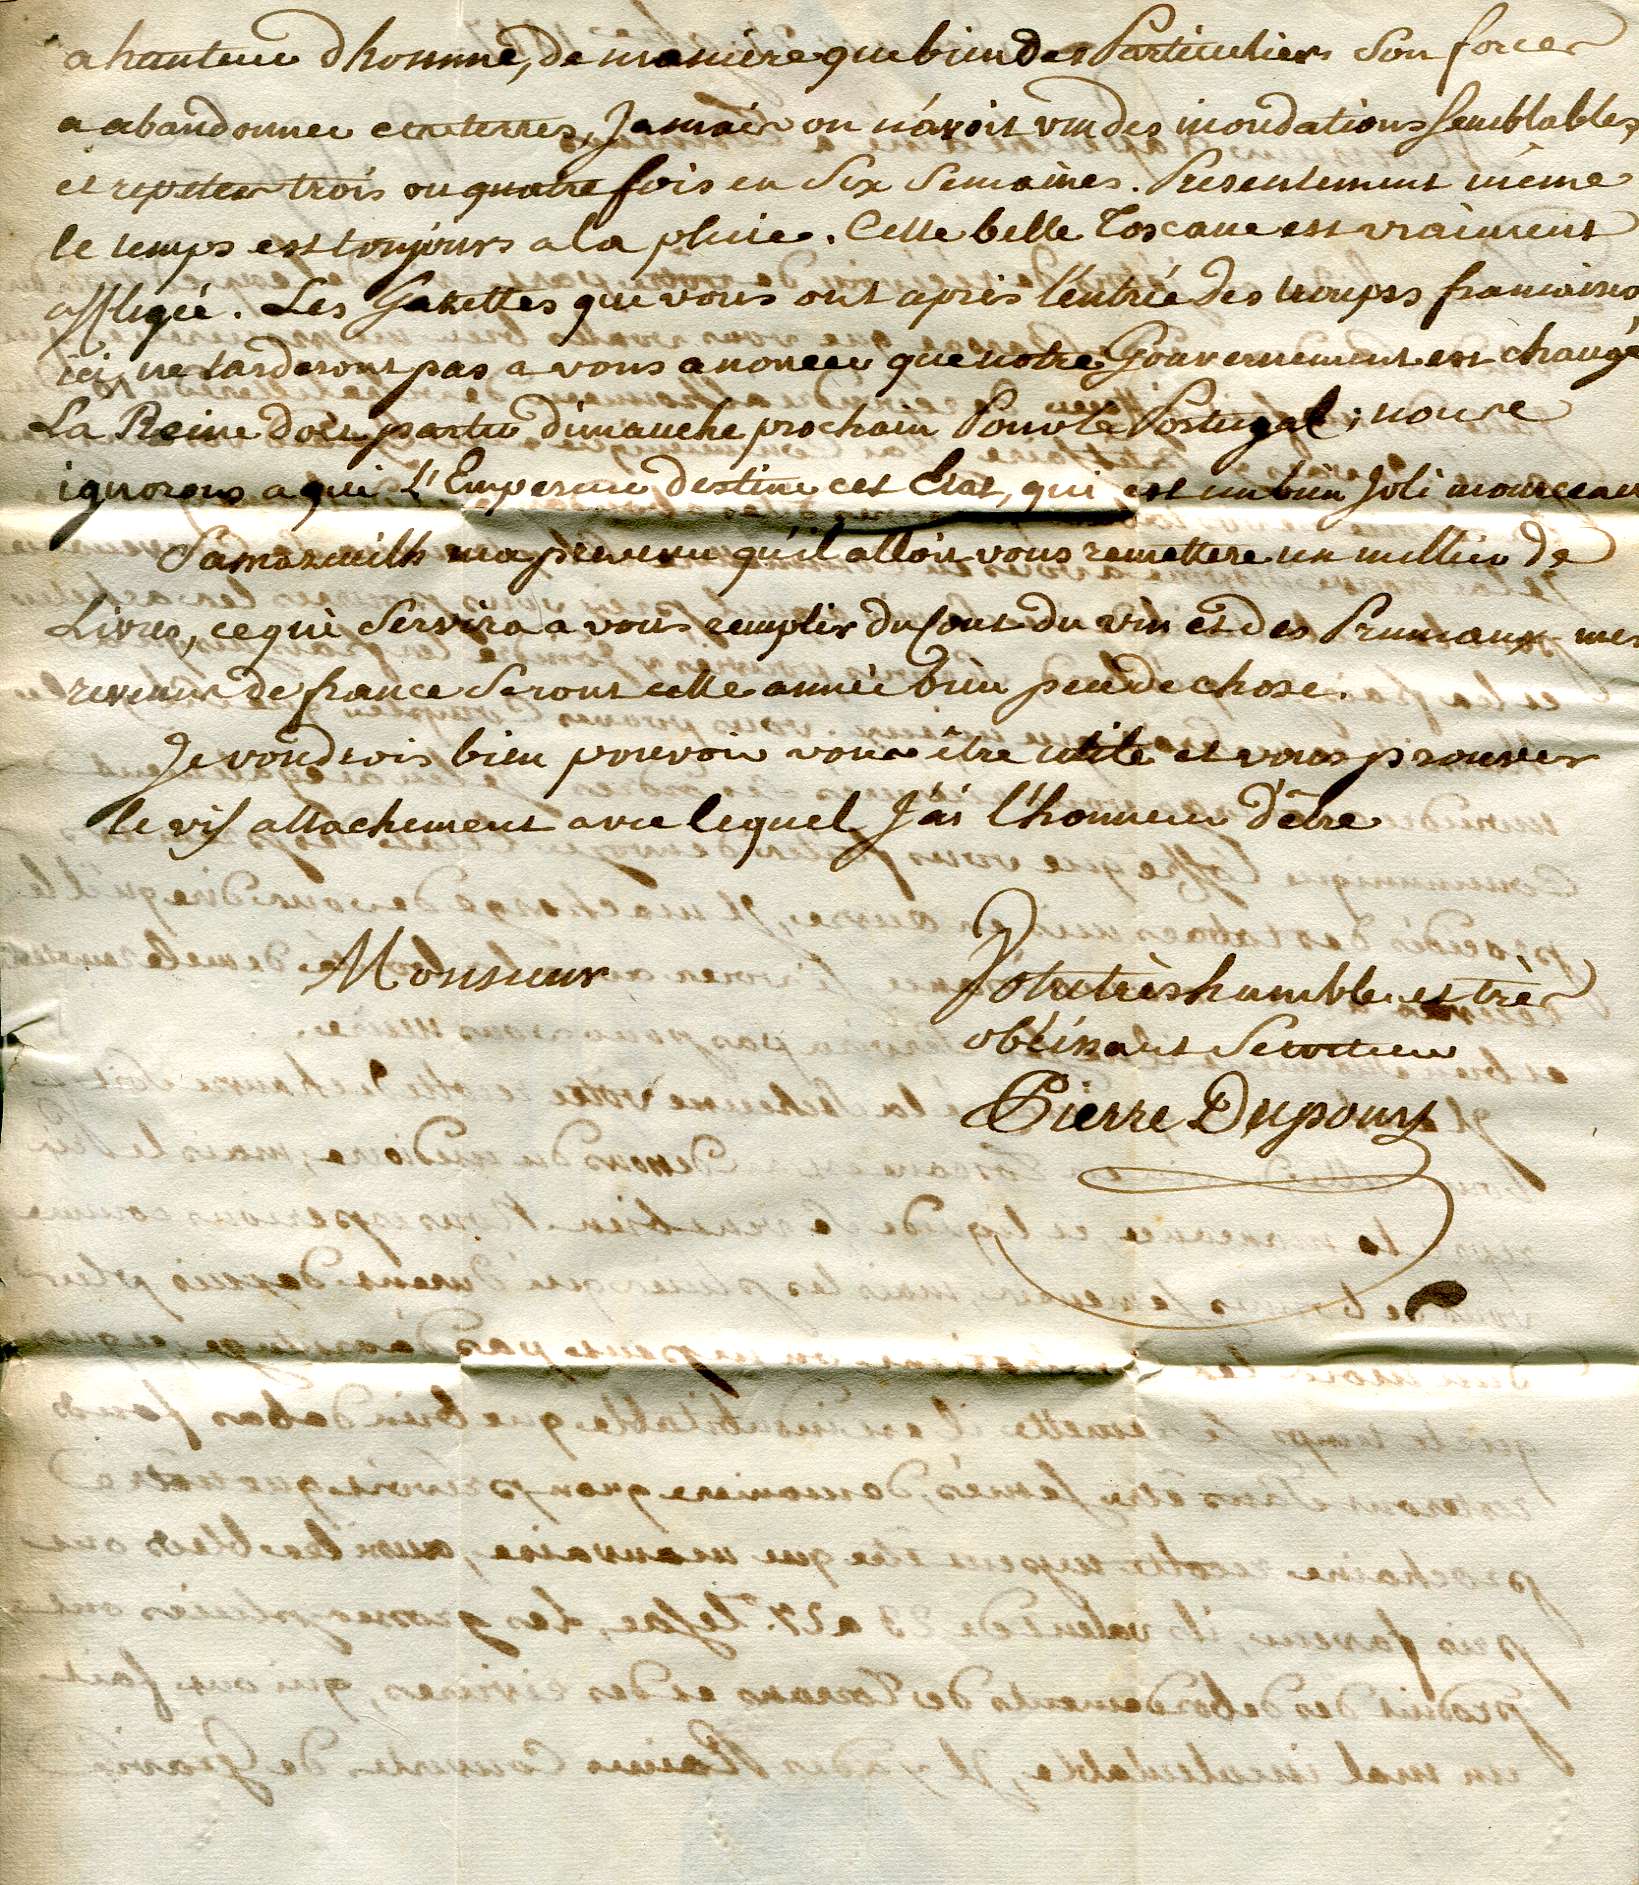 a hauteur d'homme, de maniere que bien des Particuliers Son forcés
a abandonner ces terres, Jamais on n'avoit vu des inondations Semblables,
et repetés trois ou quatre fois en Six Semaines. Présentement même
le temps est toujours a la pluie. Cette belle Toscane est vraiment
affligée. Les Gazettes que vous ont apris l'entrée des troupes francaises
ici, ne tarderont pas a vous anoncer que notre Gouvernement est changé
La Reine doit partir dimanche prochain Pour le Portugal; nous
ignorons a qui L'Empereur destine cet Etat, qui est un bien Joli mourceau
ma prevenu qu'il alloit vous remettre un millier de
Livres, ce qui Servira a vous remplir du Cout du vin et des Prunaux mes
revenus de france Seront cette année bien peu de chose.
Je voudrois bien pouvoir vous être utile et vous prouver
le vif attachement avec lequel J'ai l'honneur d'être
Monsieur
Votre très humble et très
obéissant Serviteur
Pierre Dupouy